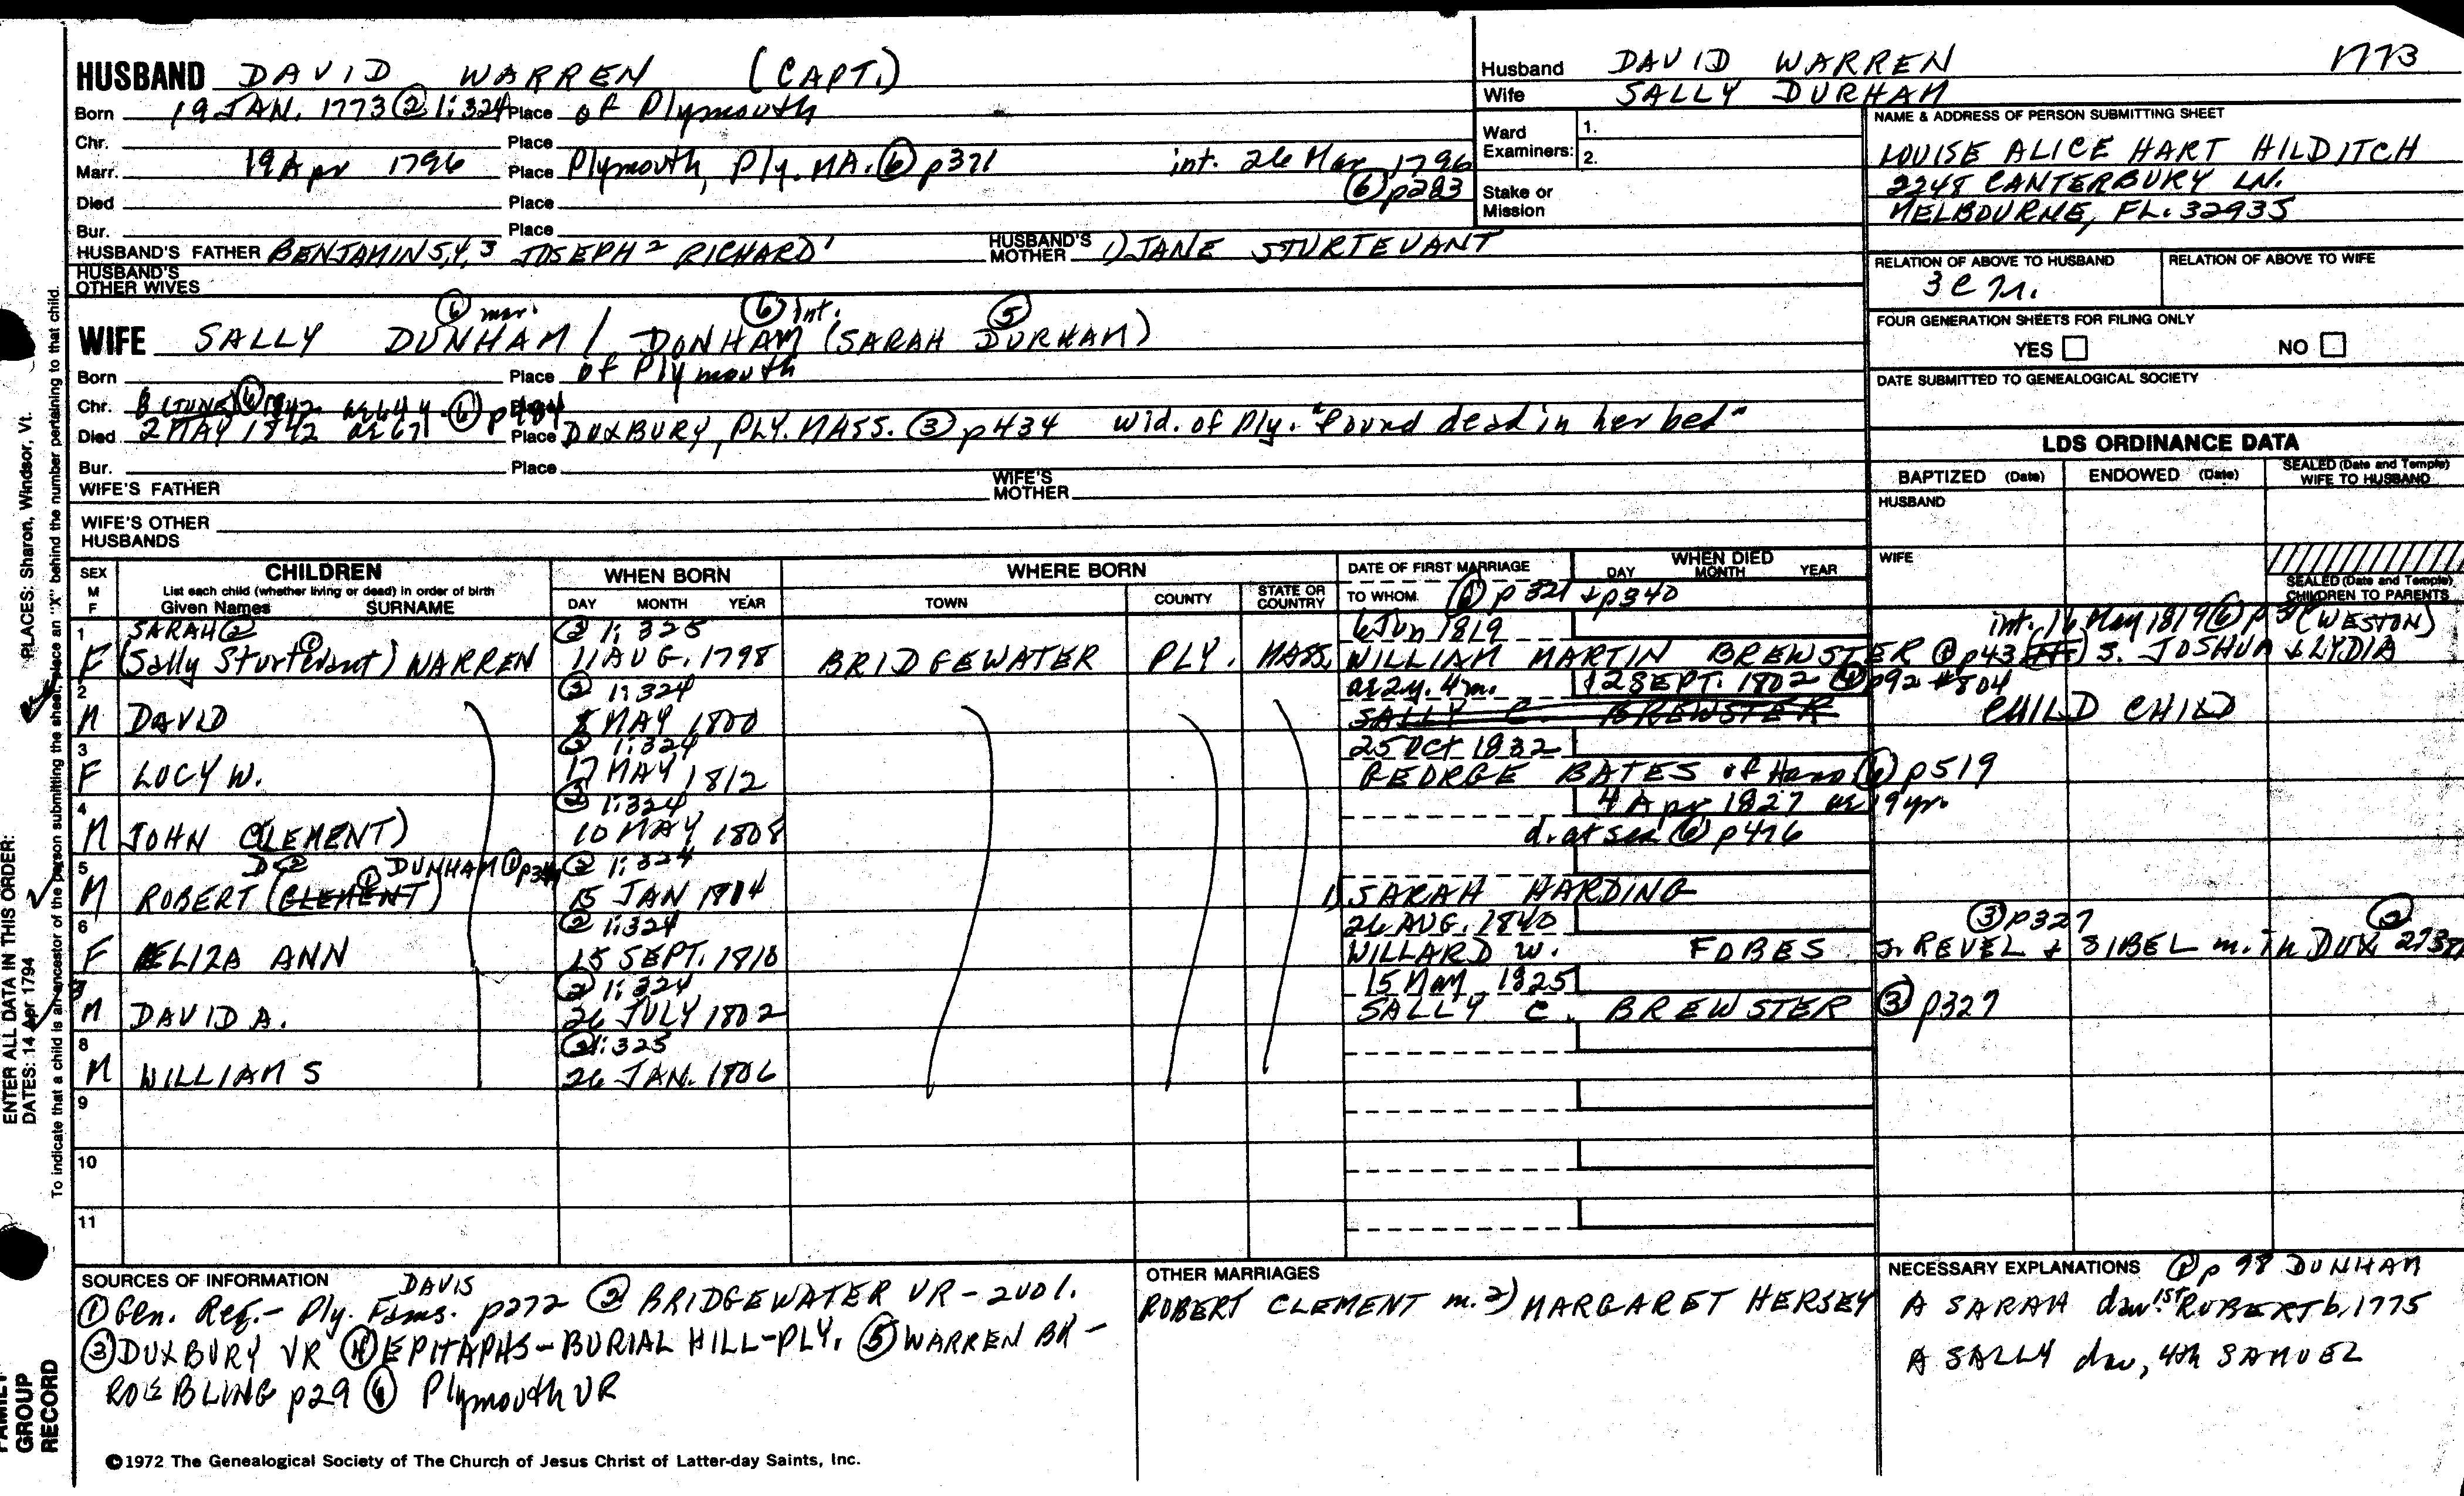 HUSBAND DAVID WARREN (CAPT.)
Born 19 JAN. 1773 ② 1:324 Place of Plymouth
Chr. Place
Marr. 19 Apr 1796 Place Plymouth, Ply. MA. ⑥ p371 int. 26 Mar 1796
⑥ p283
Died Place
Bur. Place
HUSBAND'S FATHER BENJAMIN 5,4,3 JOSEPH 2 RICHARD 1 HUSBAND'S MOTHER 1) JANE STURTEVANT
HUSBAND'S OTHER WIVES
Husband DAVID WARREN 1773
Wife SALLY DURHAM
Ward Examiners: 1.
2.
Stake or Mission
NAME & ADDRESS OF PERSON SUBMITTING SHEET
LOUISE ALICE HART HILDITCH
2248 CANTERBURY LN.
MELBOURNE, FL. 32935
RELATION OF ABOVE TO HUSBAND RELATION OF ABOVE TO WIFE
FOUR GENERATION SHEETS FOR FILING ONLY
YES NO
DATE SUBMITTED TO GENEALOGICAL SOCIETY
⑥ mar. ⑥ int. ⑤
WIFE SALLY DUNHAM / DONHAM (SARAH DURHAM)
Born Place of Plymouth
Chr. 8 (JUNE) ⑥ 1842 ⑥ p484
Died 2 MAY 1842 ae 67 Place DUXBURY, PLY. MASS. ③ p434 wid. of Ply. "found dead in her bed"
Bur. Place
WIFE'S FATHER WIFE'S MOTHER
WIFE'S OTHER HUSBANDS
LDS ORDINANCE DATA
BAPTIZED (Date) ENDOWED (Date) SEALED (Date and Temple) WIFE TO HUSBAND
HUSBAND
WIFE
SEALED (Date and Temple) CHILDREN TO PARENTS
SEX M F CHILDREN List each child (whether living or dead) in order of birth Given Names SURNAME
WHEN BORN DAY MONTH YEAR
WHERE BORN TOWN COUNTY STATE OR COUNTRY
DATE OF FIRST MARRIAGE TO WHOM ⑥ p 321 + p340
WHEN DIED DAY MONTH YEAR
1 SARAH ② ② 1:325 6 Jun 1819 int. 16 May 1819 ⑥ (WESTON)
F (Sally Sturtevant) WARREN 11 AUG. 1798 BRIDGEWATER PLY. MASS. WILLIAM MARTIN BREWSTER ① p43 s. JOSHUA & LYDIA
2 ② 1:324 ae 2y. 4m. 12 SEPT. 1802 ④ p92 #804
M DAVID 8 MAY 1800 SALLY C. BREWSTER CHILD CHILD
3 ② 1:324 25 Oct 1832
F LUCY W. 17 MAY 1812 GEORGE BATES of Hano ⑥ p519
4 ② 1:324 4 Apr 1827 ae 19 yr.
M JOHN CLEMENT) 10 MAY 1808 d. at sea ⑥ p476
5 D ② ① DUNHAM ① ② 1:324
M ROBERT (CLEMENT) 15 JAN 1804 1) SARAH HARDING
6 ② 1:324 26 AUG. 1840 ③ p327 ②
F ELIZA ANN 15 SEPT. 1810 WILLARD W. FOBES s. REVEL + SIBEL m. in DUX.
7 ② 1:324 15 May 1825
M DAVID A. 26 JULY 1802 SALLY C. BREWSTER ③ p327
8 ② 1:325
M WILLIAM S 26 JAN. 1806
9
10
11
SOURCES OF INFORMATION DAVIS
① Gen. Reg. - Ply. Fams. p272 ② BRIDGEWATER VR - 2 vol.
③ DUXBURY VR ④ EPITAPHS - BURIAL HILL - PLY. ⑤ WARREN BK -
ROEBLING p29 ⑥ Plymouth VR
OTHER MARRIAGES
ROBERT CLEMENT m. 2) MARGARET HERSEY
NECESSARY EXPLANATIONS ① p 98 DUNHAM
A SARAH dau. 1st ROBERT b. 1775
A SALLY dau, 4th SAMUEL
©1972 The Genealogical Society of The Church of Jesus Christ of Latter-day Saints, Inc.
PLACES: Sharon, Windsor, Vt.
ENTER ALL DATA IN THIS ORDER:
DATES: 14 Apr 1794
To indicate that a child is an ancestor of the person submitting the sheet, place an "X" behind the number pertaining to that child.
FAMILY GROUP RECORD